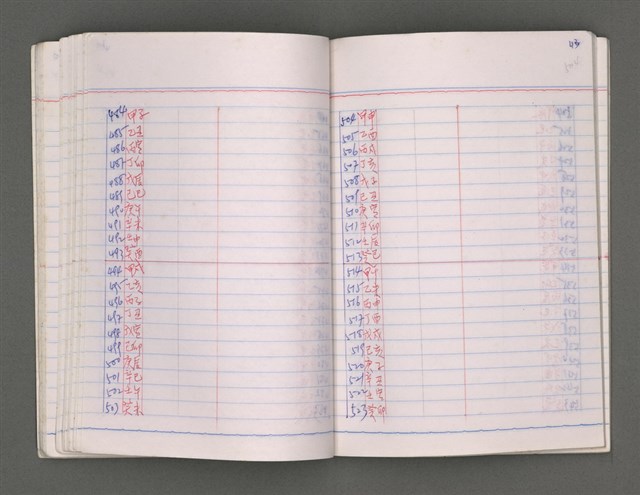 484 甲子
485 乙丑
486 丙寅
487 丁卯
488 戊辰
489 己巳
490 庚午
491 辛未
492 壬申
493 癸酉
494 甲戌
495 乙亥
496 丙子
497 丁丑
498 戊寅
499 己卯
500 庚辰
501 辛巳
502 壬午
503 癸未
43
504 甲申
505 乙酉
506 丙戌
507 丁亥
508 戊子
509 己丑
510 庚寅
511 辛卯
512 壬辰
513 癸巳
514 甲午
515 乙未
516 丙申
517 丁酉
518 戊戌
519 己亥
520 庚子
521 辛丑
502 壬寅
523 癸卯